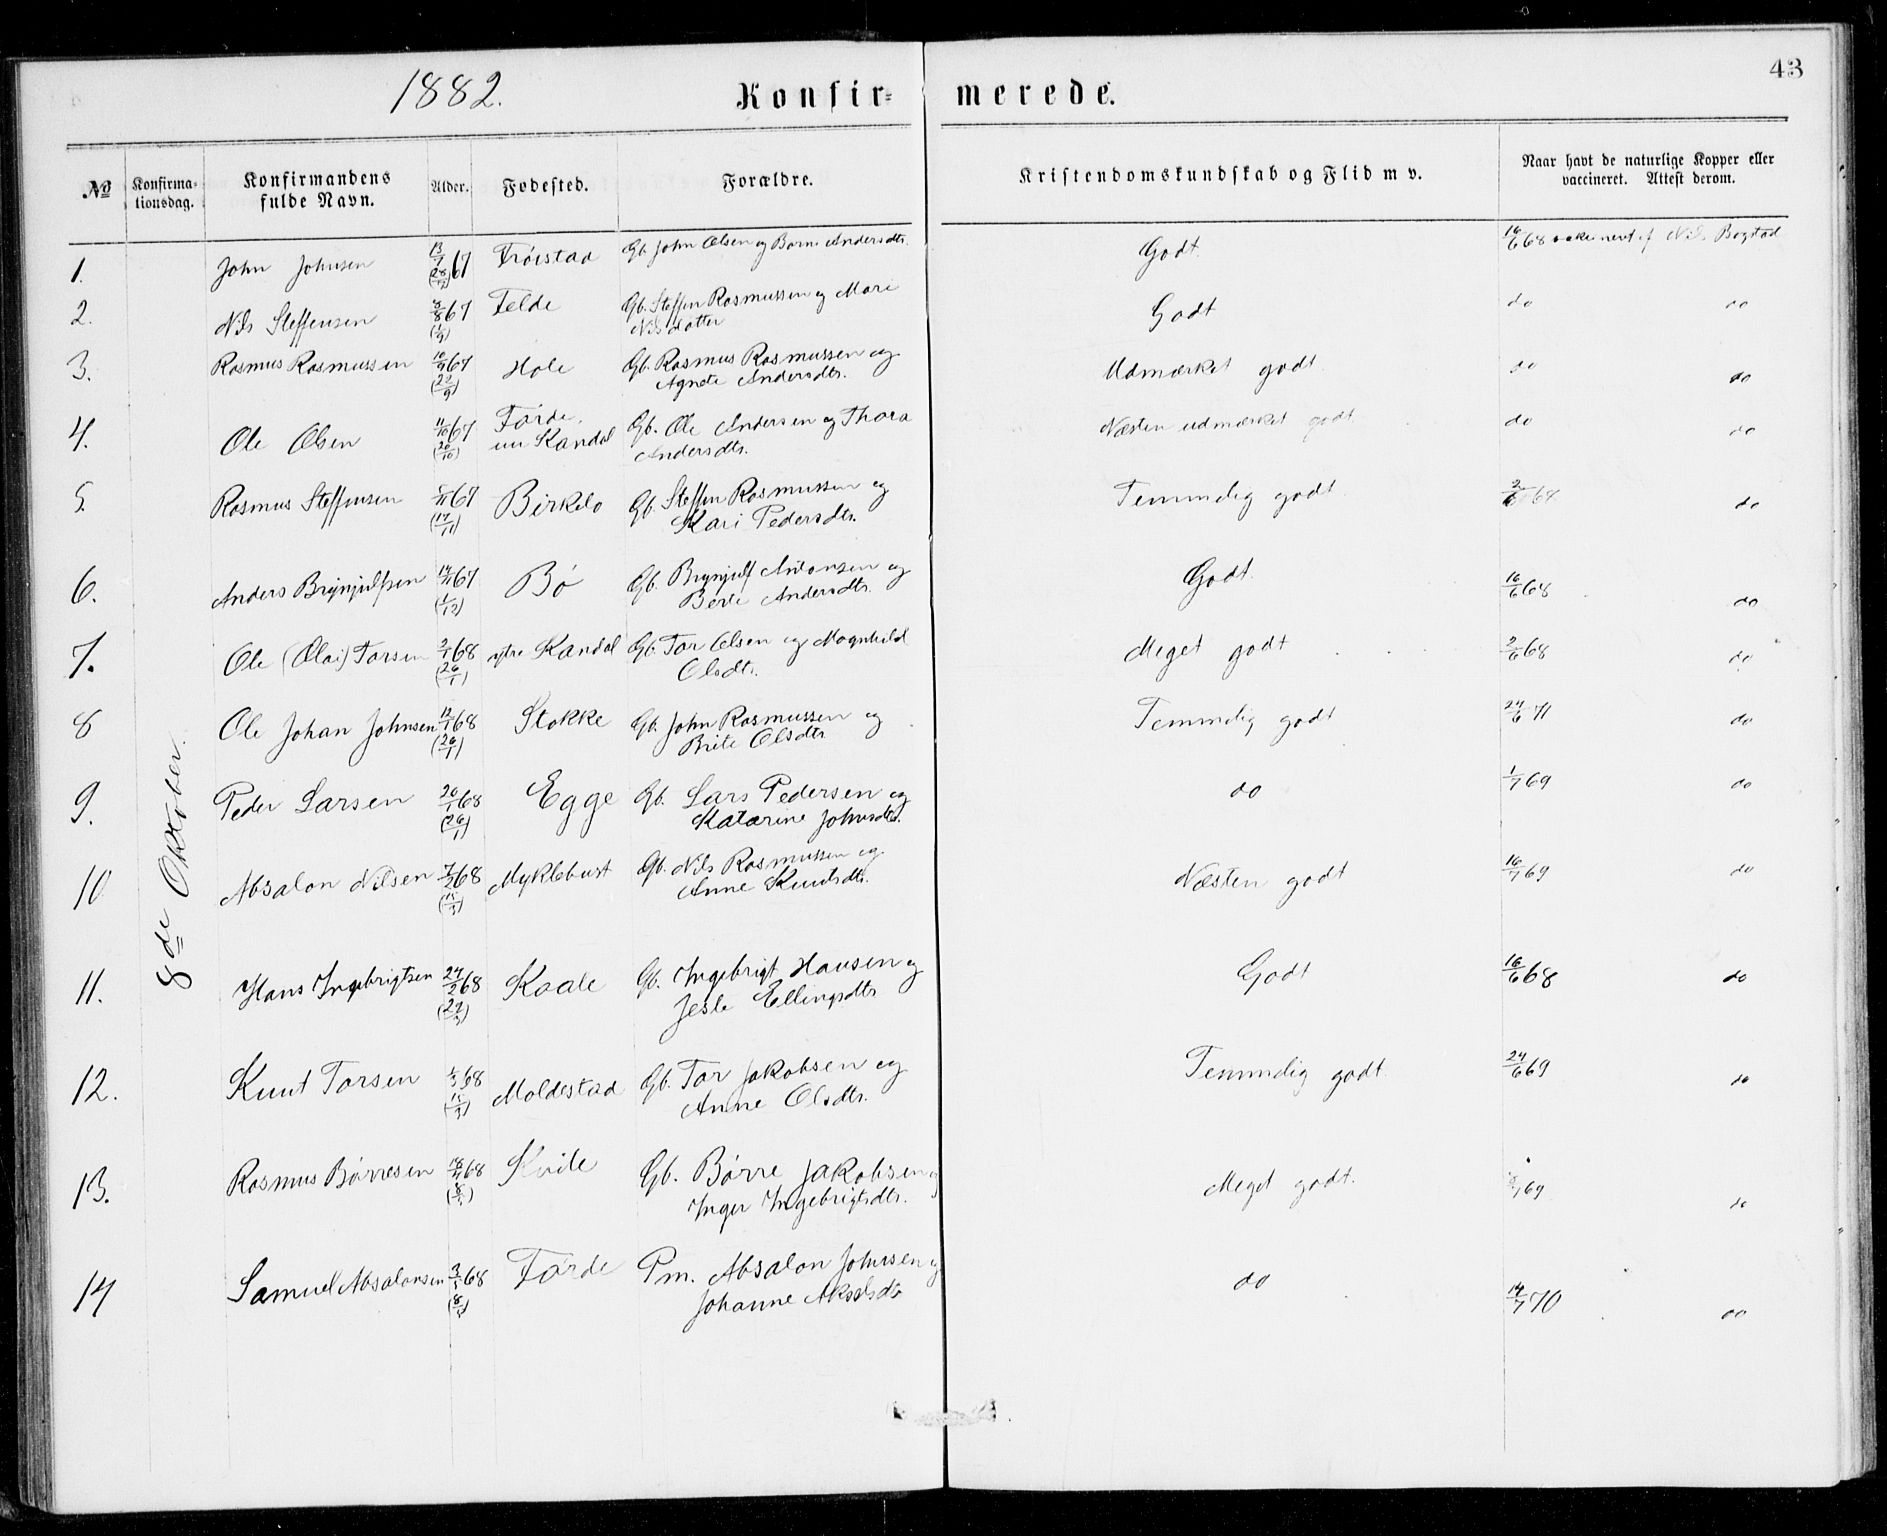 43
1882. Konfir- merede.
No Konfirma-tionsdag. Konfirmandens fulde Navn. Alder. Fodested. Forældre. Kristendomskundskab og Flid m v. Naar havt de naturlige Kopper eller vaccineret. Attest derom.
8de Oktober.
1. John Johnsen 13/7 67 Trøistad Gb. John Olsen og Andersdtr. Godt. 16/6 68 vakcineret af Nils Bogstad
2. Nils Steffensen 8/8 67 (1/9) Felde Gb. Steffen Rasmussen og Mari
Nilsdatter Godt do do
3. Rasmus Rasmussen 10/9 67 (22/9) Hole Gb. Rasmus Rasmussen og
Agnete Andersdtr. Udmærket godt. do do
4. Ole Olsen 11/10 67 (20/10) Førde, Gb. Ole Andersen og Thora
nu Kandal Andersdtr. Næsten udmærket godt do do
5. Rasmus Steffensen 5/11 67 (17/11) Birkelo Gb. Steffen Rasmussen og
Kari Pedersdtr. Temmelig godt 2/6 68 do
6. Anders Brynjulfsen 14/11 67 (1/12) Bø Gb. Brynjulf Antonsen og
Berte Andersdtr. Godt. 16/6 68 do
7. Ole (Olai) Torsen 2/1 68 (26/1) ytre Kandal Gb. Tor Olsen og Magnhild
Olsdtr. Meget godt 2/6 68 do
8 Ole Johan Johnsen 12/1 68 (26/1) Stokke Gb. John Rasmussen og
Brite Olsdtr Temmelig godt 24/6 71 do
9. Peder Larsen 20/1 68 (26/1) Egge Gb. Lars Pedersen og
Katarine Johnsdtr. do 1/7 69 do
10 Absalon Nilsen 7/2 68 (15/3) Myklebust Gb. Nils Rasmussen og
Anne Knutsdtr. Næsten godt 16/7 69 do
11. Hans Ingebrigtsen 24/2 68 (22/3) Kaale Gb. Ingebrigt Hansen og
Jesle Ellingsdtr Godt 16/6 68 do
12. Knut Torsen 1/3 68 (15/3) Moldestad Gb. Tor Jakobsen og
Anne Olsdtr. Temmelig godt. 24/6 69 do
13. Rasmus Børresen 18/4 68 Kvile Gb. Børre Jakobsen og
Inger Ingebrigtsdtr. Meget godt. 69 do
14 Samuel Absalonsen 3/5 68 Førde Pm. Absalon Johnsen og
Johanne Akselsdtr do 14/7 70 do